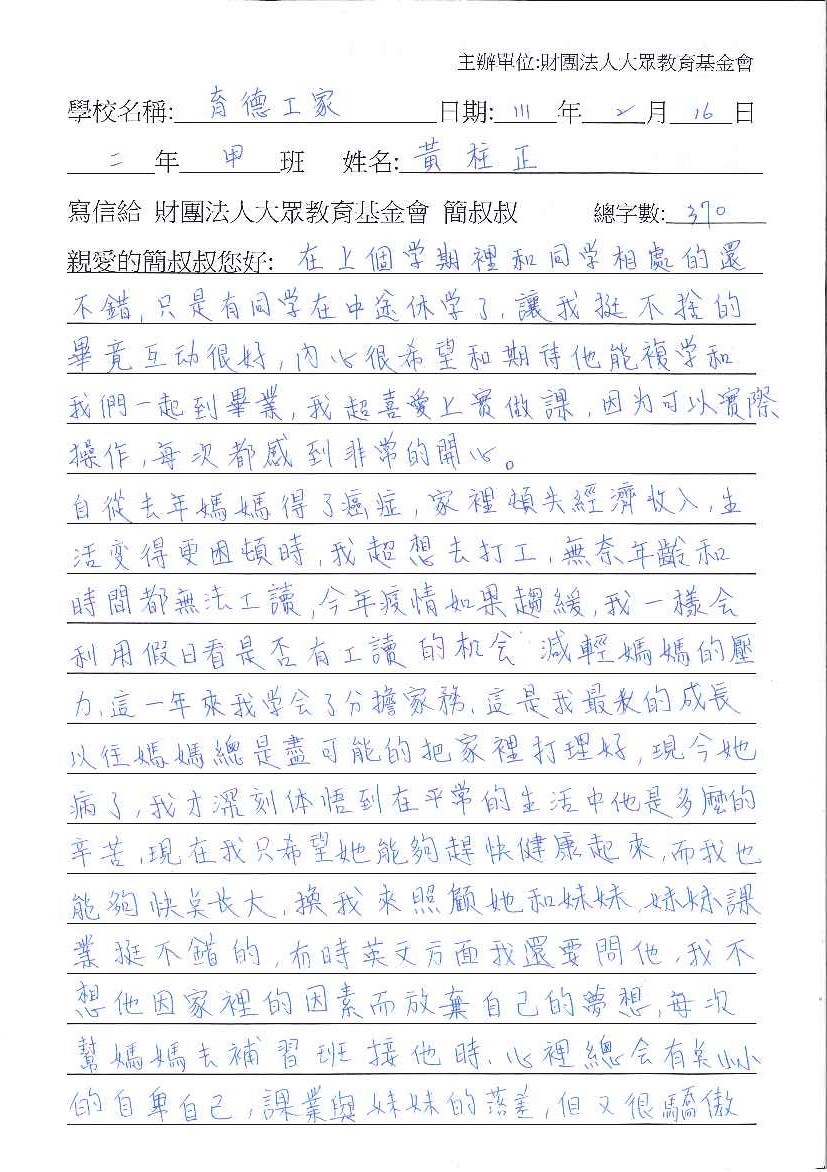 主辦單位:財團法人大眾教育基金會
學校名稱: 育德工家 日期: 111 年 2 月 16 日
二 年 甲 班 姓名: 黃柱正
寫信給 財團法人大眾教育基金會 簡叔叔 總字數: 370
親愛的簡叔叔您好: 在上個学期裡和同学相處的還
不錯,只是有同学在中途休学了,讓我挺不捨的
畢竟互动很好,內心很希望和期待他能複学和
我們一起到畢業,我超喜愛上實做課,因为可以實際
操作,每次都感到非常的開心。
自從去年媽媽得了癌症,家裡頓失經濟收入,生
活变得更困頓時,我超想去打工,無奈年齡和
時間都無法工讀,今年疫情如果趨緩,我一樣会
利用假日看是否有工讀的机会 減輕媽媽的壓
力,這一年來我学会了分擔家務,這是我最大的成長
以往媽媽總是盡可能的把家裡打理好,現今她
病了,我才深刻体悟到在平常的生活中他是多麼的
辛苦,現在我只希望她能夠趕快健康起來,而我也
能夠快点长大,換我來照顧她和妹妹,妹妹課
業挺不錯的,有時英文方面我還要問他,我不
想他因家裡的因素而放棄自己的夢想,每次
幫媽媽去補習班接他時,心裡總会有点小小
的自卑自己,課業與妹妹的落差,但又很驕傲